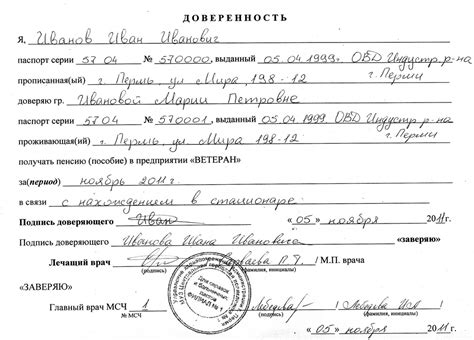 ДОВЕРЕННОСТЬ
Я, Иванов Иван Иванович
паспорт серии 57 04 № 570000, выданный 05.04.1999. ОВД Индустр. р-на
прописанная(ый) г. Пермь, ул Мира, 198-12 г. Перми
доверяю гр. Ивановой Марии Петровне
паспорт серии 5704 № 570001, выданный 05.04.1999. ОВД Индустр. р-на
проживающая(ий) г. Пермь, ул. Мира 198-12 г. Перми
получать пенсию (пособие) в предприятии «ВЕТЕРАН»
за(период) ноябрь 2011г.
в связи с нахождением в стационаре
Подпись доверяющего Иван «05» ноября 2011г.
Подпись доверяющего Иванова Ивана Ивановича «заверяю»
Лечащий врач / / М.П. врача
(подпись) (фамилия, инициалы)
«ЗАВЕРЯЮ»
Для справок и больничных листов ФИЛИАЛ № 1
Главный врач МСЧ 1 / /
№ МСЧ (подпись) (фамилия, инициалы)
«05» ноября 2011г.